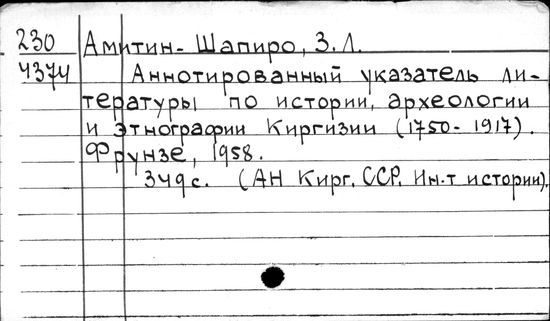 230 Амитин-Шапиро, З.Л.
4374 Аннотированный указатель ли-
тературы по истории, археологии
и этнографии Киргизии (1750-1917).
Фрунзе, 1958.
349с. (АН Кирг. ССР. Ин-т истории).